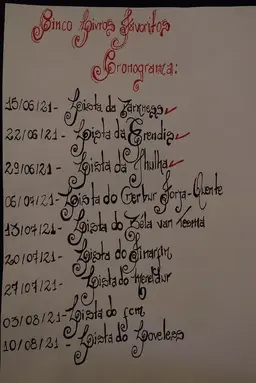 Cinco Livros Favoritos
Cronograma:
15/06/21- Lista da Darkness
22/06/21- Lista da Erendis
29/06/21- Lista da Thulha
06/07/21- Lista do Gerbur Forja-Quente
13/07/21- Lista do Zéla van
20/07/21- Lista do Girardin
27/07/21- Lista do Meneldur
03/08/21- Lista do
10/08/21- Lista do Loveless